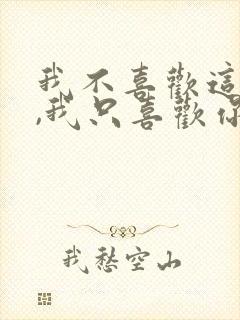 我不喜歡這
,我只喜歡你
我愁空山